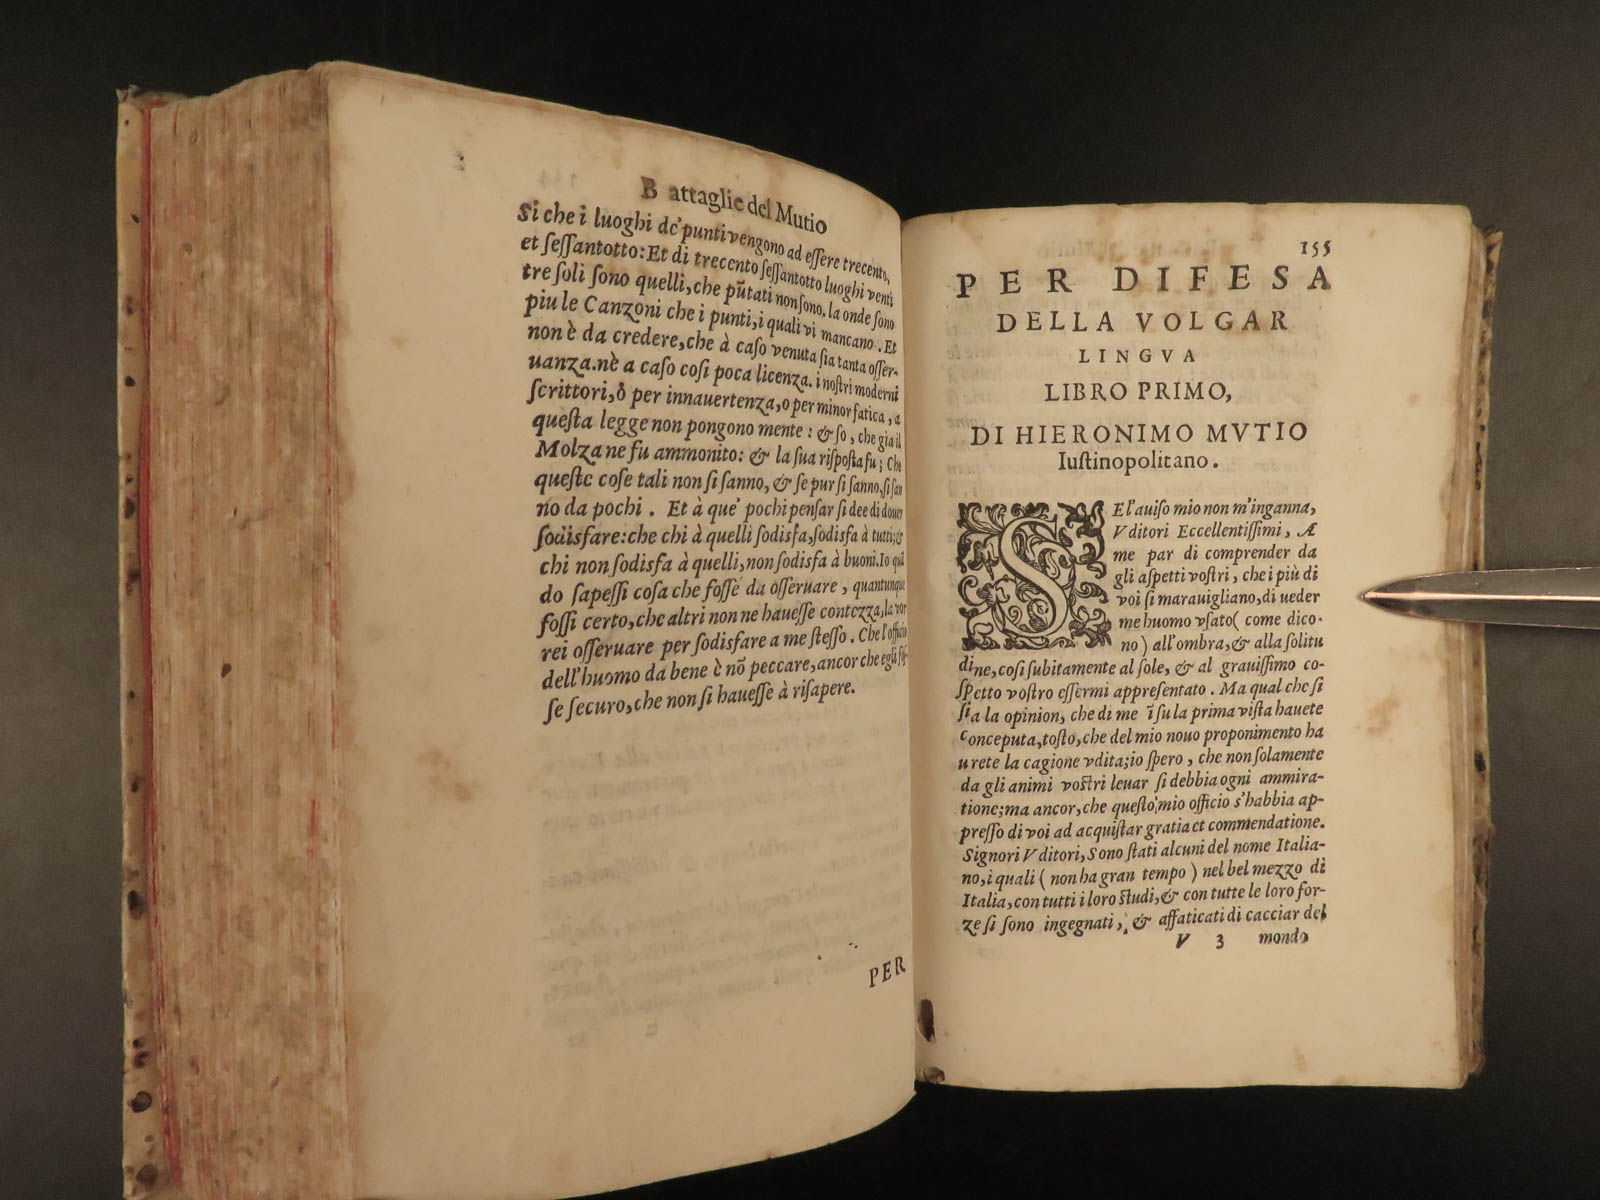 Battaglie del Mutio
Si che i luoghi de' punti vengono ad eſſere trecento,
et ſeſſantotto: Et di trecento ſeſſantotto luoghi venti
tre ſoli ſono quelli, che pũtati non ſono. la onde ſono
piu le Canzoni che i punti, i quali vi mancano. Et
non è da credere, che à caſo venuta ſia tanta oſſer-
uanza. nè a caſo coſi poca licenza. i noſtri moderni
ſcrittori, ò per innauertenza, o per minor fatica, a
queſta legge non pongono mente: & ſo, che gia il
Molza ne fu ammonito: & la sua riſpoſta fu; Che
queſte coſe tali non ſi ſanno, & ſe pur ſi ſanno, ſi ſan
no da pochi. Et à que' pochi penſar ſi dee di douer
ſodisfare: che chi à quelli ſodisfa, ſodisfa à tutti; &
chi non ſodisfa à quelli, non ſodisfa à buoni. Io quã
do sapeſſi coſa che foſſe da oſſeruare, quantunque
foſſi certo, che altri non ne haueſſe contezza, la vor
rei oſſeruare per ſodisfare a me ſteſſo. Che l'officio
dell'huomo da bene è nõ peccare, ancor che egli foſ-
ſe ſecuro, che non ſi haueſſe à riſapere.
PER
155
PER DIFESA
DELLA VOLGAR
LINGVA
LIBRO PRIMO,
DI HIERONIMO MVTIO
Iuſtinopolitano.
SE l'auiſo mio non m'inganna,
Vditori Eccellentiſſimi, Æ
me par di comprender da
gli aſpetti voſtri, che i più di
voi ſi marauigliano, di ueder
me huomo vſato (come dico-
no) all'ombra, & alla ſolitu
dine, coſi ſubitamente al ſole, & al grauiſſimo co-
ſpetto voſtro eſſermi appreſentato. Ma qual che ſi
ſia la opinion, che di me ĩ ſu la prima viſta hauete
conceputa, toſto, che del mio nouo proponimento ha
urete la cagione vdita; io ſpero, che non ſolamente
da gli animi voſtri leuar ſi debbia ogni ammira-
tione; ma ancor, che queſto mio officio s'habbia ap-
preſſo di voi ad acquiſtar gratia et commendatione.
Signori Vditori, Sono ſtati alcuni del nome Italia-
no, i quali (non ha gran tempo) nel bel mezzo di
Italia, con tutti i loro ſtudi, & con tutte le loro for-
ze ſi ſono ingegnati, & affaticati di cacciar del
V 3 mondo